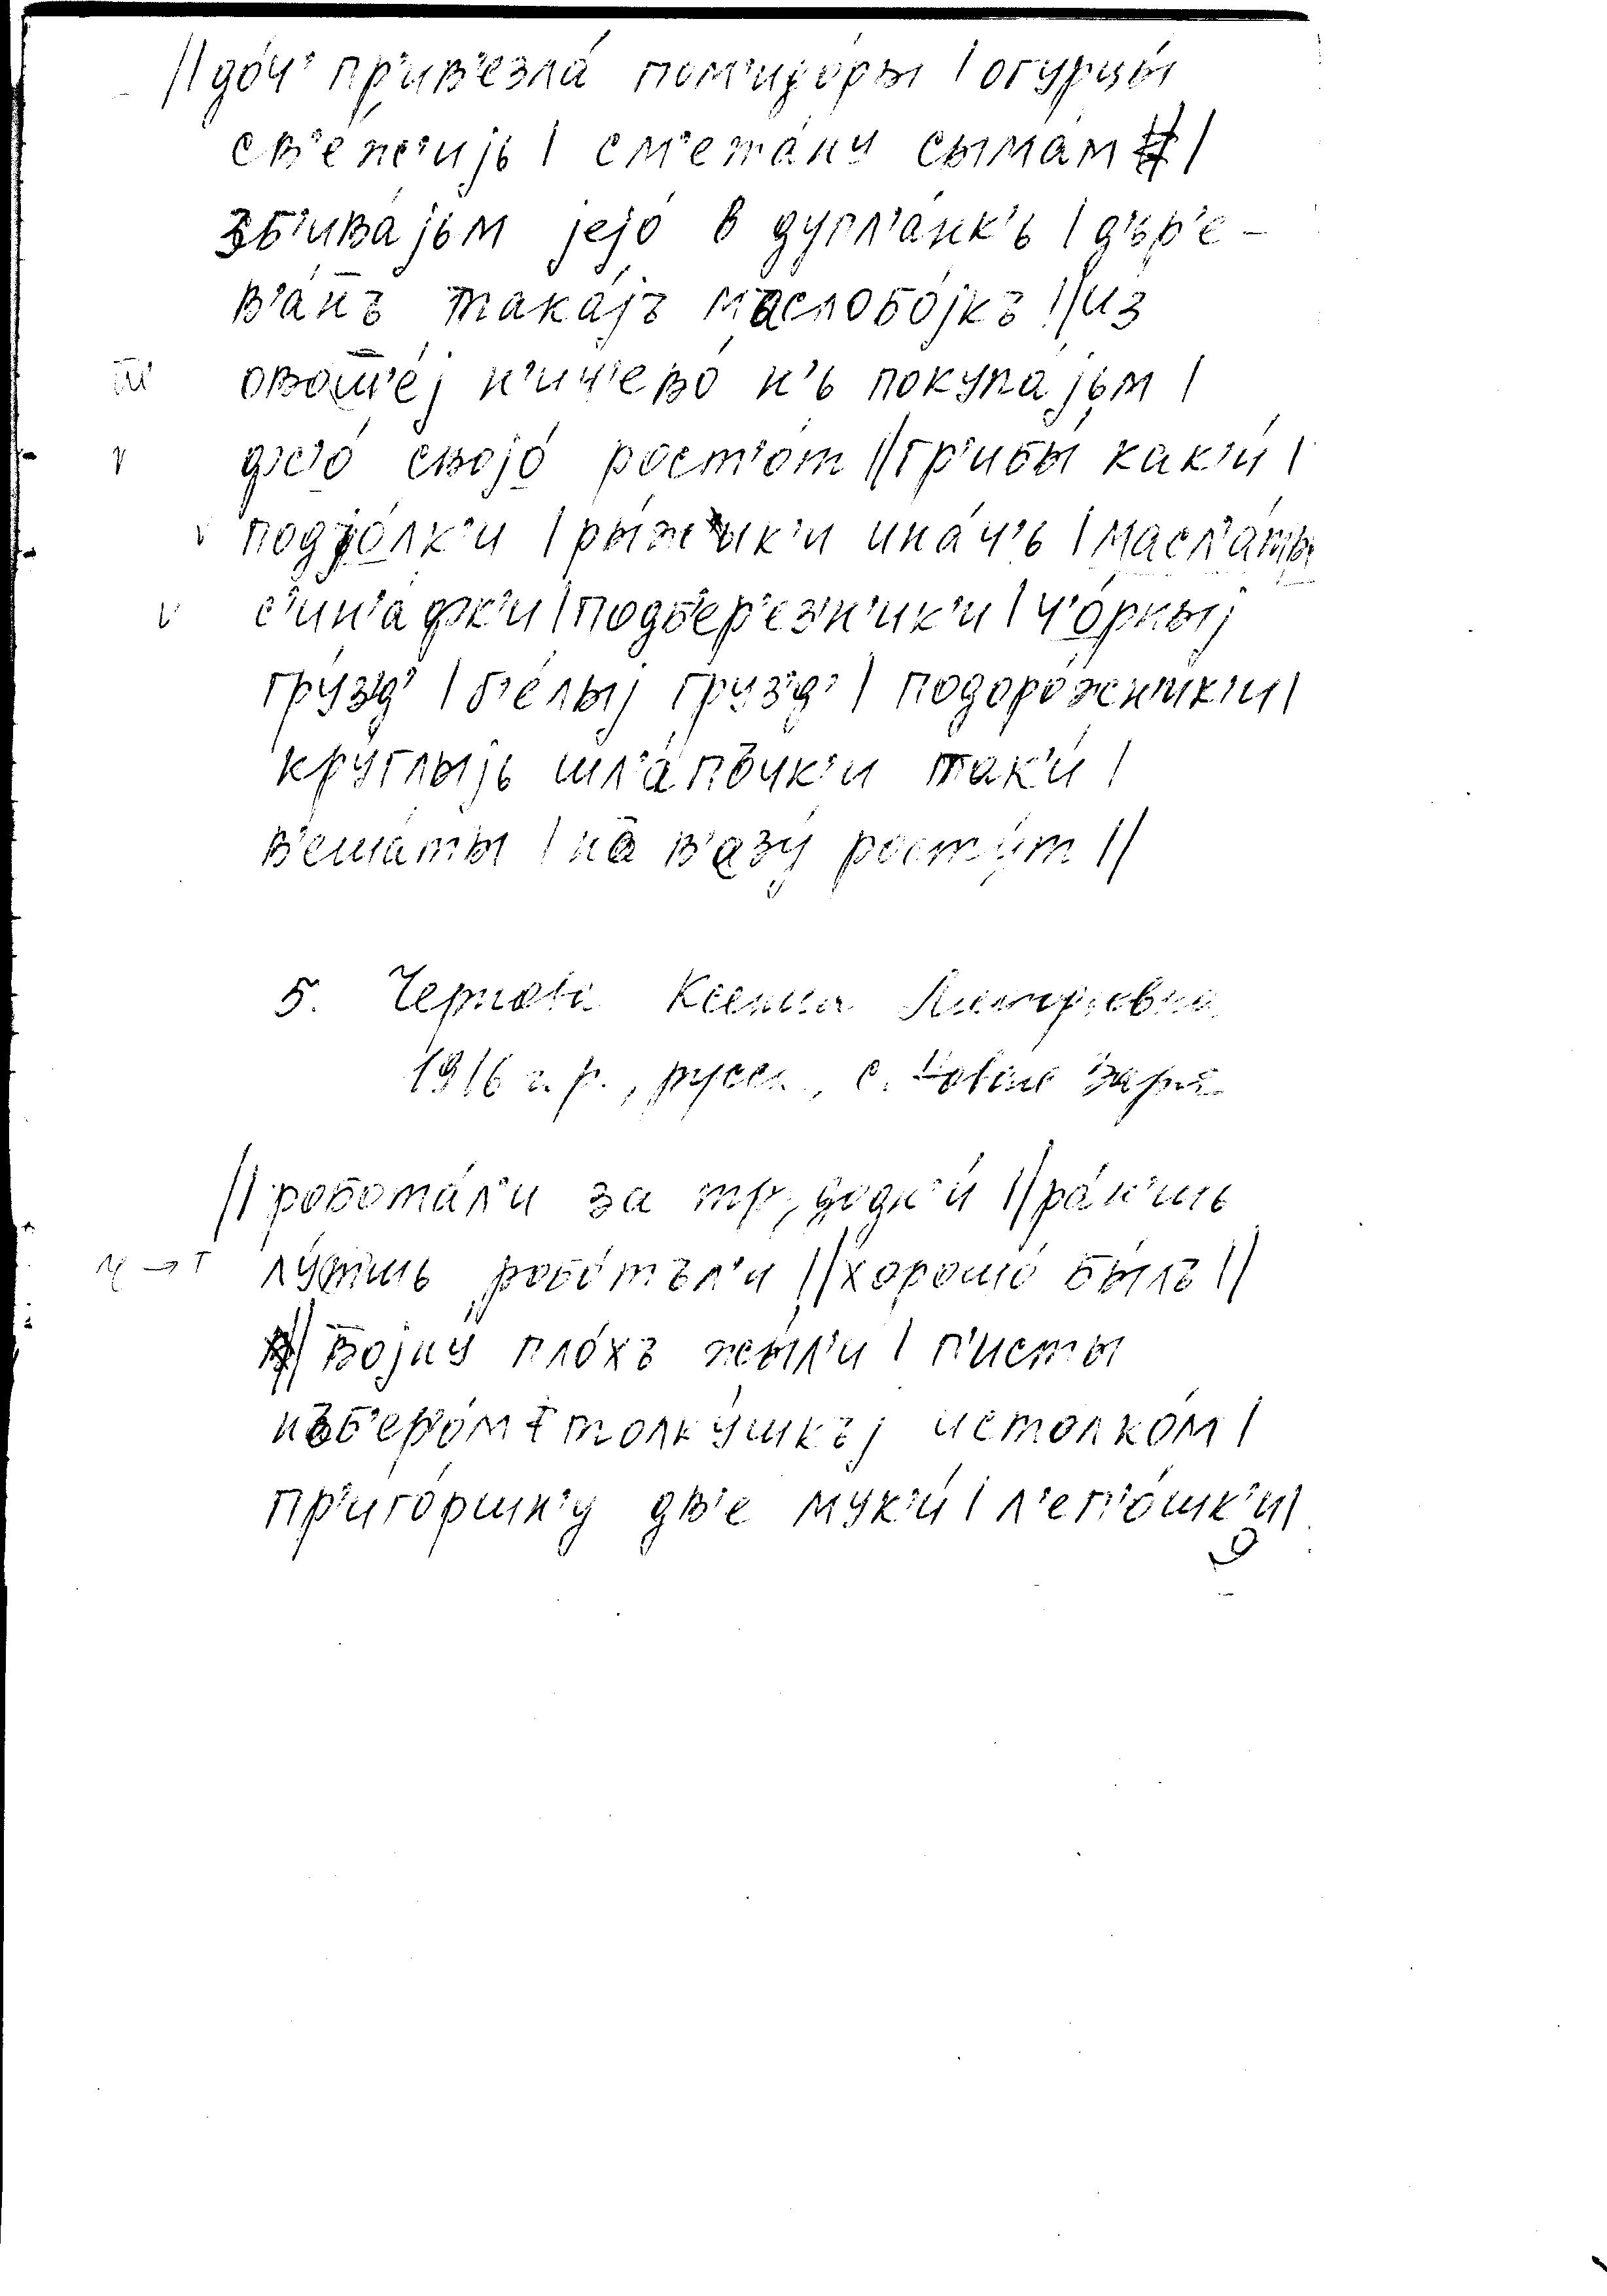 //до́ч' пр'ив'езла́ пом'идо́ры | огурцы́
св'е́ж'ијь | см'ета́ну сыма́м |
зб'ива́јьм јејо́ в дупл'а́нк'ь | д'ьр'е-
в'а́нъ така́јъ маслобо́јкъ || из
ш̅' овош̅'е́ј н'ич'ево́ н'ь покупа́јьм |
v фс'о́ својо́ рост'о́т || гр'ибы́ как'и́ |
v подјо́лк'и | ры́жык'и ина́ч'ь | масл'а́ты
v с'ин'а́фк'и | подб'ер'е́з'н'ик'и | ч'о́рныј
гру́з'д' | б'е́лыј гру́з'д' | подоро́жн'ик'и |
кру́глыјь шл'а́пъчк'и так'и́ |
в'еша́ты | на в'азу́ росту́т ||
5. Чернова Ксения
1916 г.р., русск., с. Новые Зари
|| робота́л'и за трудодн'и́ || ра́н'шь
ч → т лу́тшь робо́тъл'и || хорошо́ бы́лъ ||
војну́ пло́хъ жы́л'и | п'исты
нъб'ер'о́м толку́шкъј истолко́м |
пр'иго́ршн'у дв'е мук'и́ | л'еп'о́шк'и |
9